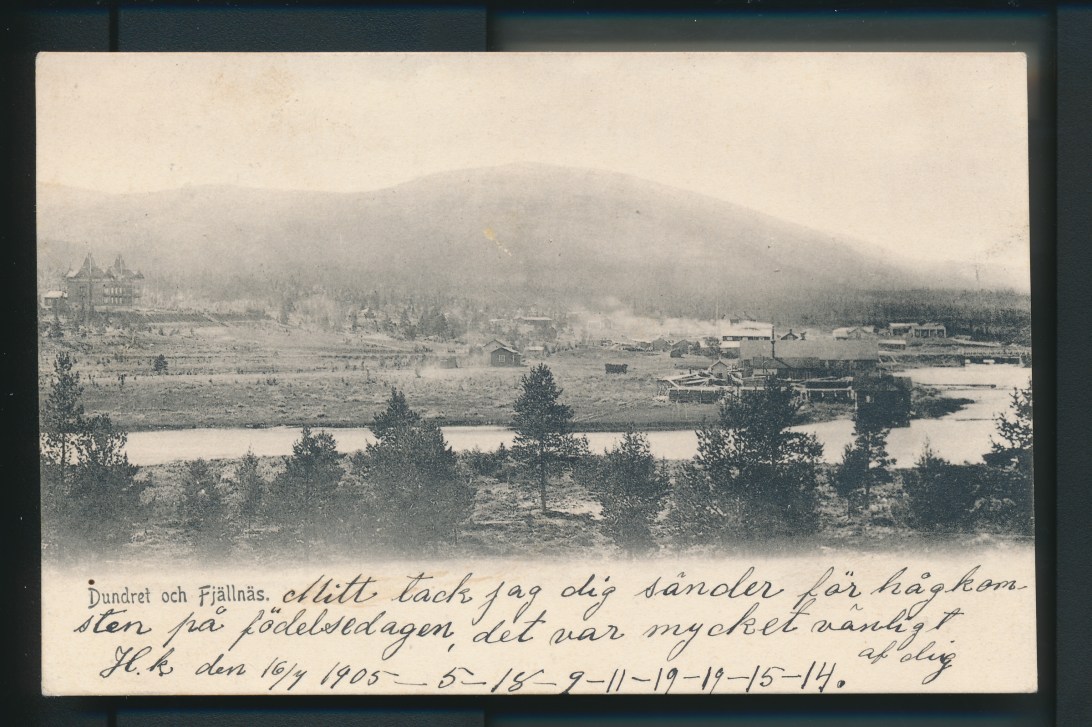 Dundret och Fjällnäs. Mitt tack jag dig sänder för hågkom-
sten på födelsedagen, det var mycket vänligt
af dig
H.k den 16/4 1905 – 5 – 18 – 9 – 11 – 19 – 19 – 15 – 14.